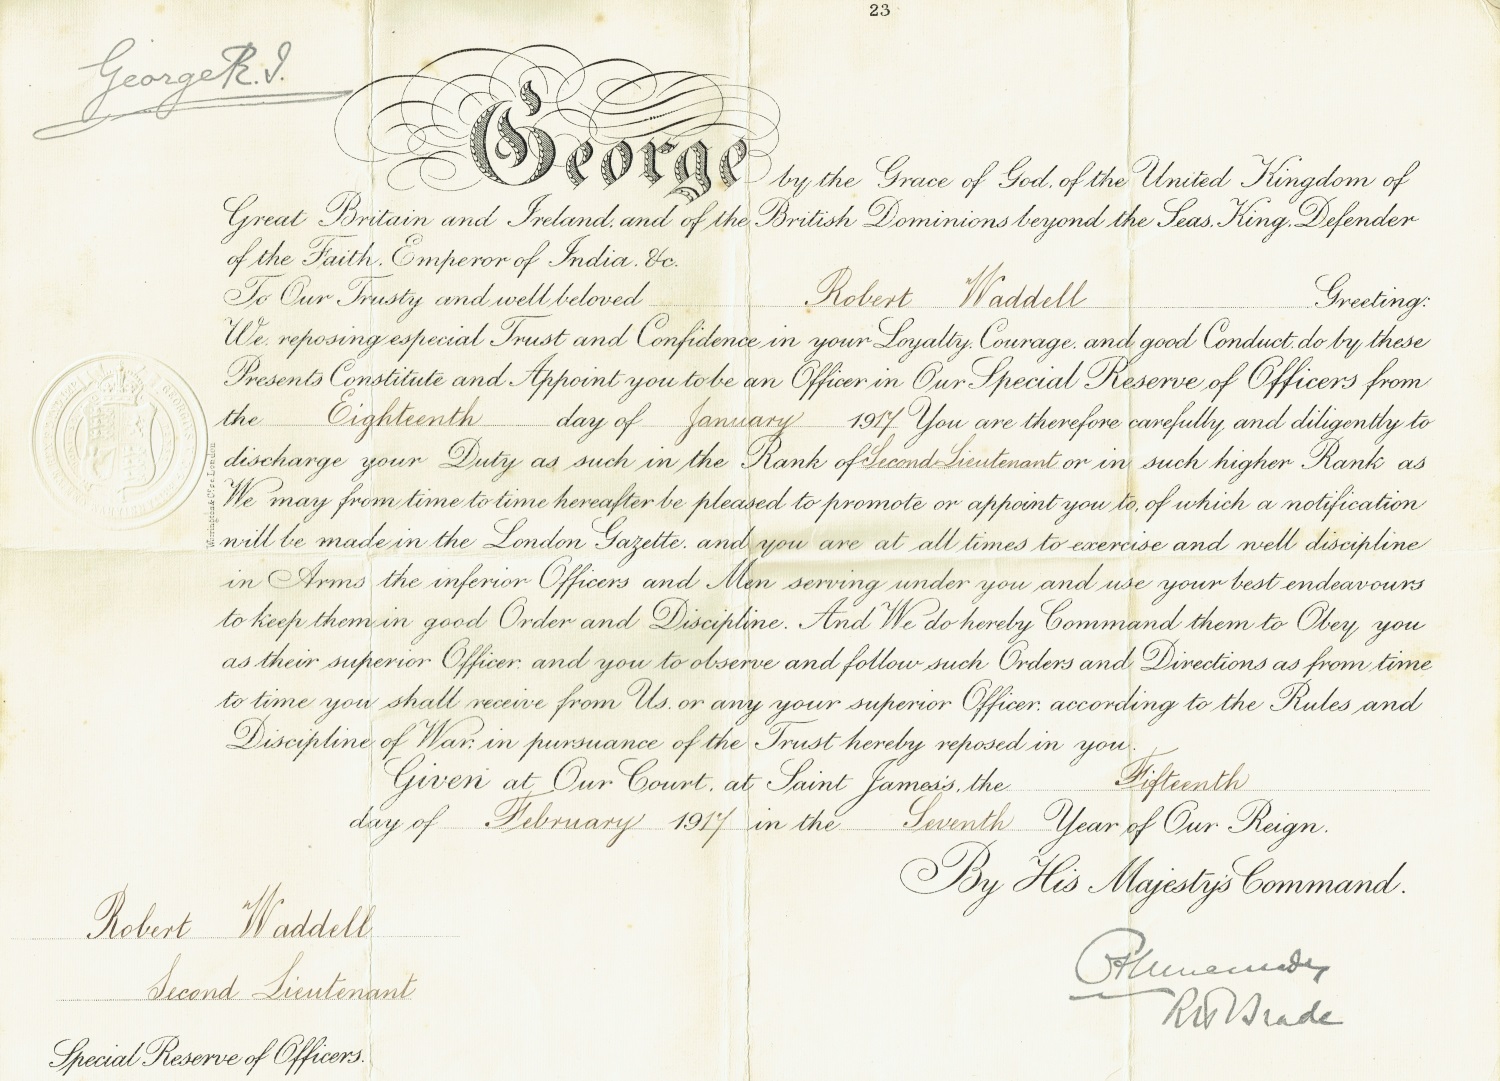 23
George R.I.
George by the Grace of God, of the United Kingdom of
Great Britain and Ireland, and of the British Dominions beyond the Seas, King, Defender
of the Faith, Emperor of India, &c.
To Our Trusty and well beloved Robert Waddell Greeting:
We, reposing especial Trust and Confidence in your Loyalty, Courage, and good Conduct, do by these
Presents Constitute and Appoint you to be an Officer in Our Special Reserve of Officers from
the Eighteenth day of January 1917. You are therefore carefully and diligently to
discharge your Duty as such in the Rank of Second Lieutenant or in such higher Rank as
We may from time to time hereafter be pleased to promote or appoint you to, of which a notification
will be made in the London Gazette, and you are at all times to exercise and well discipline
in Arms the inferior Officers and Men serving under you and use your best endeavours
to keep them in good Order and Discipline. And We do hereby Command them to Obey you
as their superior Officer, and you to observe and follow such Orders and Directions as from time
to time you shall receive from Us, or any your superior Officer, according to the Rules and
Discipline of War, in pursuance of the Trust hereby reposed in you.
Given at Our Court, at Saint James's, the Fifteenth
day of February 1917 in the Seventh Year of Our Reign.
By His Majesty's Command.
Robert Waddell
Second Lieutenant
Special Reserve of Officers.
R H Brade